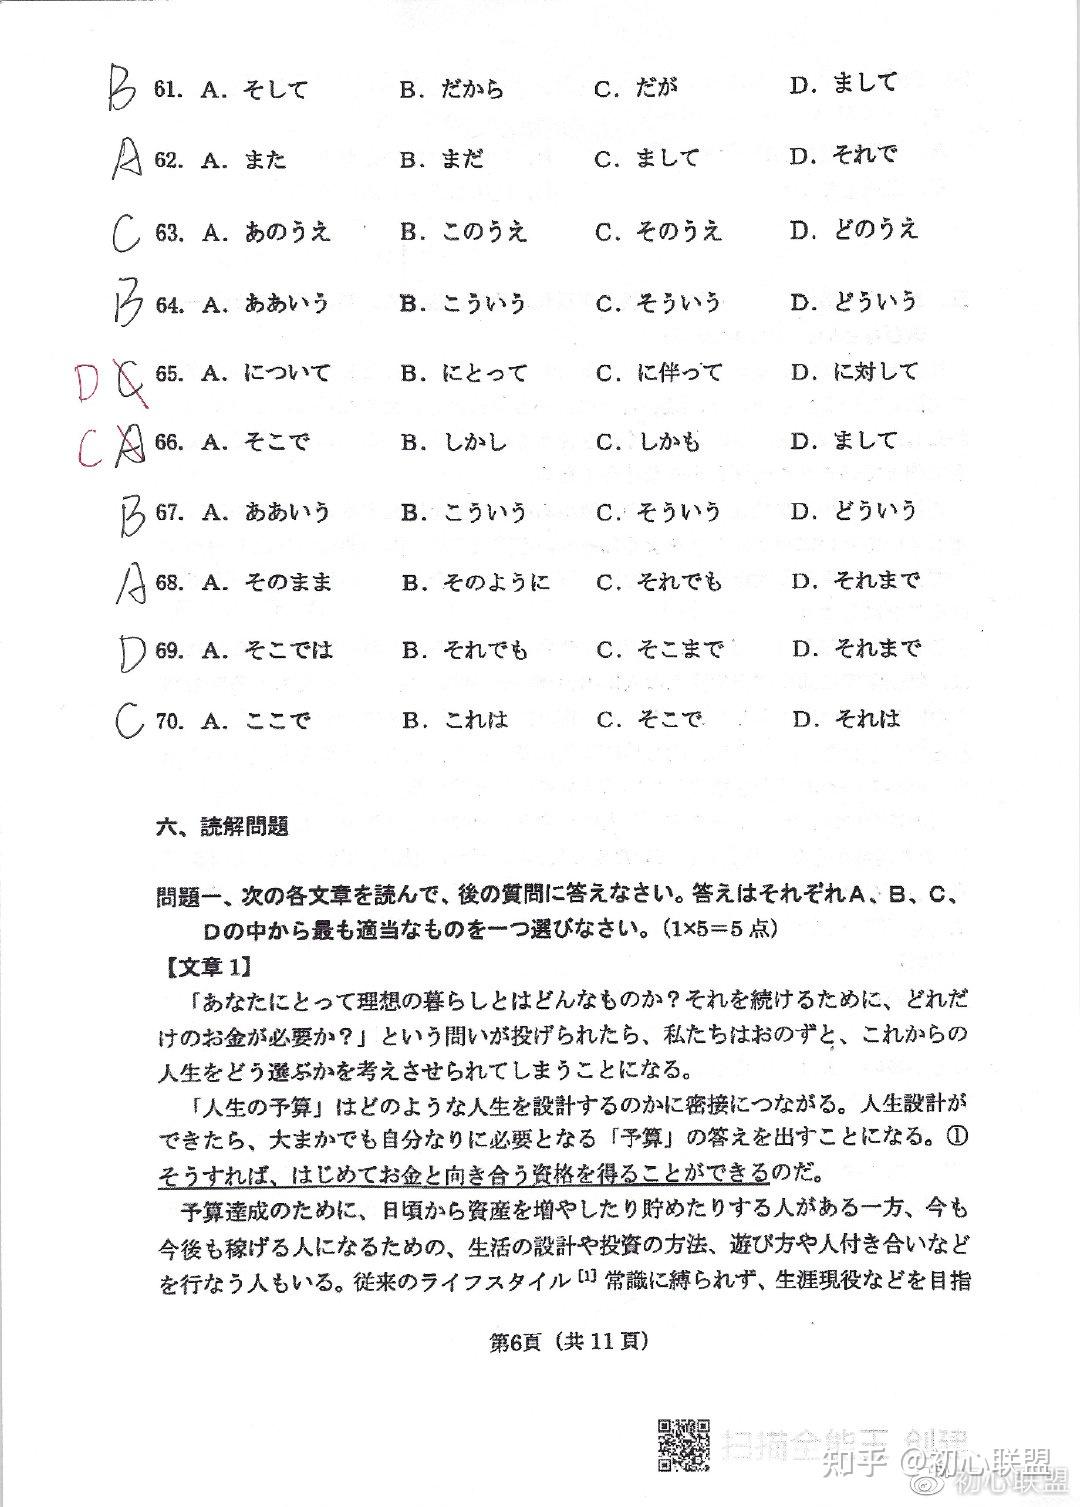 B 61. A. そして B. だから C. だが D. まして
A 62. A. また B. まだ C. まして D. それで
C 63. A. あのうえ B. このうえ C. そのうえ D. どのうえ
B 64. A. ああいう B. こういう C. そういう D. どういう
D C 65. A. について B. にとって C. に伴って D. に対して
C A 66. A. そこで B. しかし C. しかも D. まして
B 67. A. ああいう B. こういう C. そういう D. どういう
A 68. A. そのまま B. そのように C. それでも D. それまで
D 69. A. そこでは B. それでも C. そこまで D. それまで
C 70. A. ここで B. これは C. そこで D. それは
六、読解問題
問題一、次の各文章を読んで、後の質問に答えなさい。答えはそれぞれA、B、C、
Dの中から最も適当なものを一つ選びなさい。(1×5=5点)
【文章1】
「あなたにとって理想の暮らしとはどんなものか?それを続けるために、どれだ
けのお金が必要か?」という問いが投げられたら、私たちはおのずと、これからの
人生をどう選ぶかを考えさせられてしまうことになる。
「人生の予算」はどのような人生を設計するのかに密接につながる。人生設計が
できたら、大まかでも自分なりに必要となる「予算」の答えを出すことになる。①
そうすれば、はじめてお金と向き合う資格を得ることができるのだ。
予算達成のために、日頃から資産を増やしたり貯めたりする人がある一方、今も
今後も稼げる人になるための、生活の設計や投資の方法、遊び方や人付き合いなど
を行なう人もいる。従来のライフスタイル[1]常識に縛られず、生涯現役などを目指
第6頁(共11頁)
扫描全能王 创建
知乎 @初心联盟
初心联盟